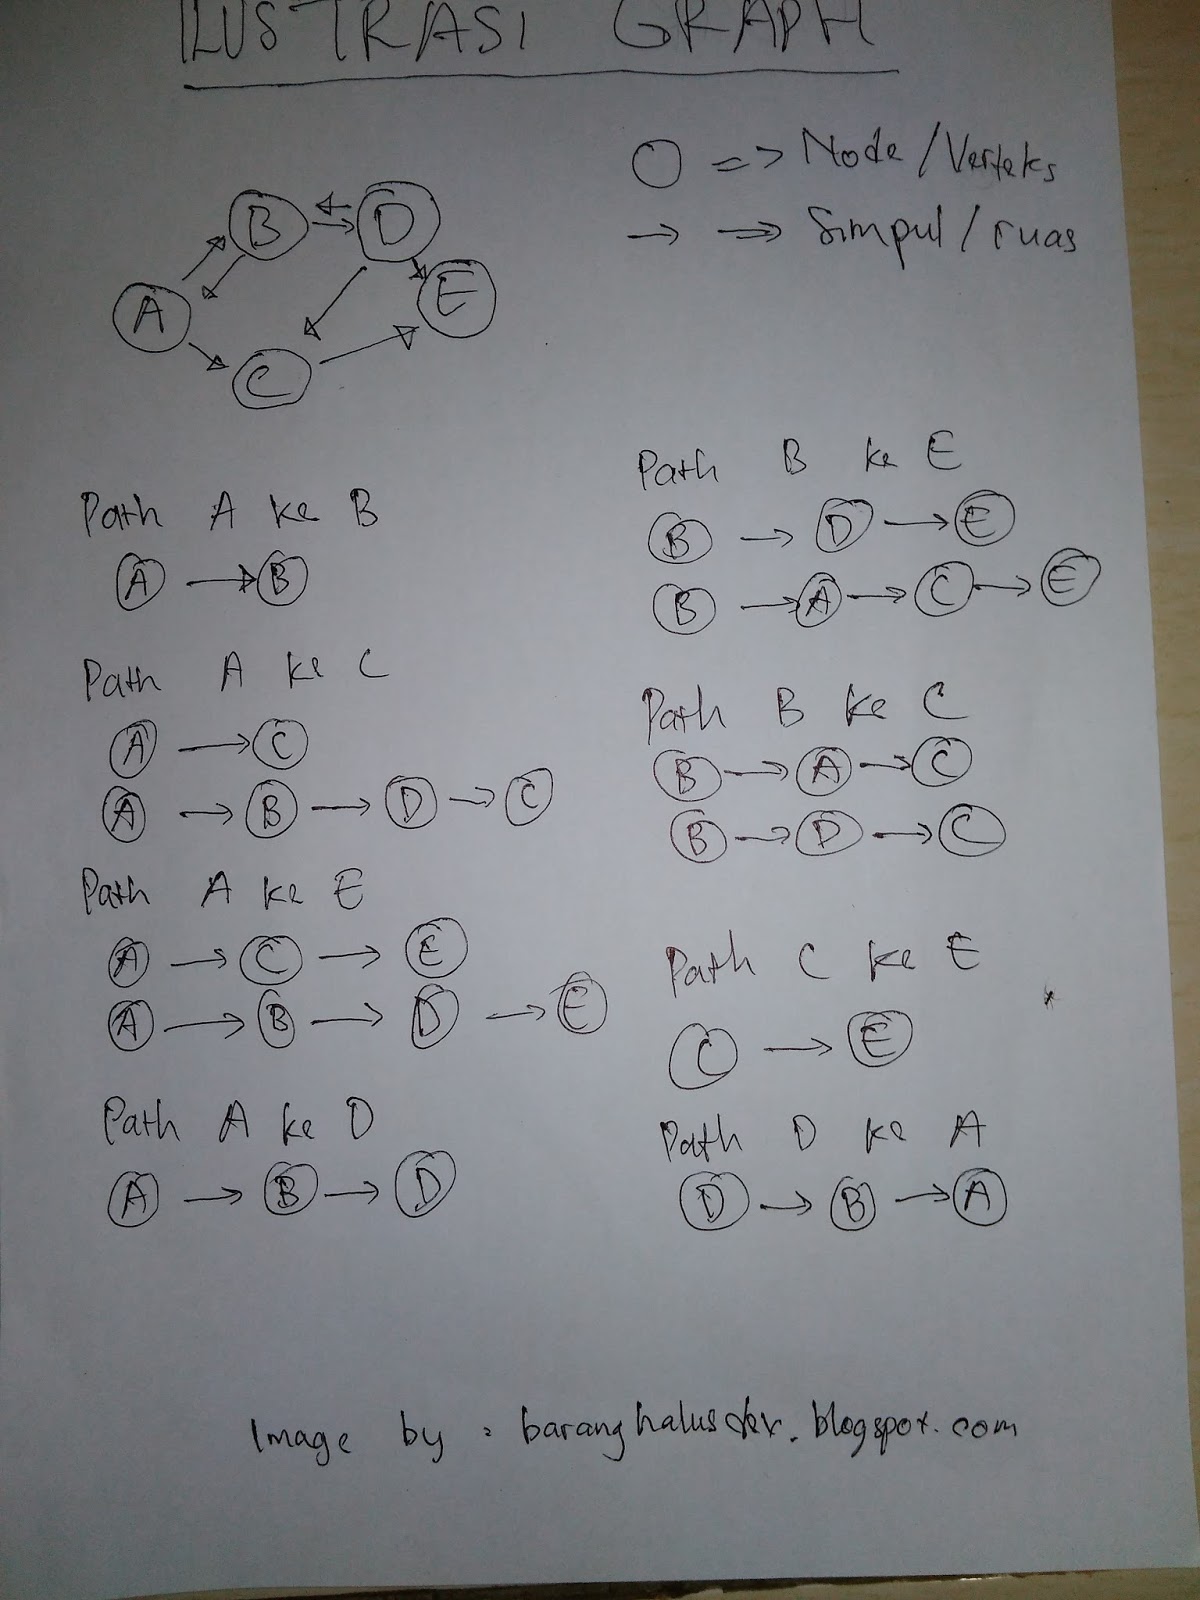 ILUSTRASI GRAPH
=> Node/Verteks
→ => Simpul/ruas
B D
A E
C
Path A ke B
A → B
Path A ke C
A → C
A → B → D → C
Path A ke E
A → C → E
A → B → D → E
Path A ke D
A → B → D
Path B ke E
B → D → E
B → A → C → E
Path B ke C
B → A → C
B → D → C
Path C ke E
C → E
Path D ke A
D → B → A
Image by : .blogspot.com